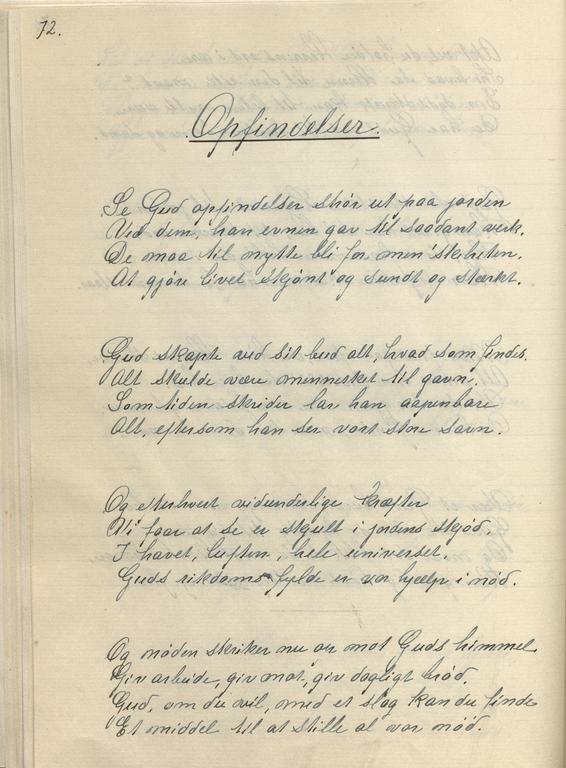 72.
Opfindelser.
Se Gud opfindelser strör ut paa jorden
Ved dem, han evnen gav til saadant verk.
De maa til nytte bli for men'skiheten.
At gjöre livet skjönt og sundt og stærkt.
Gud skapte ved sit bud alt, hvad som findes.
Alt skulde være mennesket til gavn.
Som tiden skrider lar han aapenbare
Alt, eftersom han ser vort store savn.
Og efterhvert vidunderlige kræfter
Vi faar at se er skjult i jordens skjöd.
I havet, luften, hele universet.
Guds rikdoms fylde er vor hjælp i nöd.
Og nöden skriker nu op mot Guds himmel
Giv arbeide, giv mot, giv dagligt bröd.
Gud, om du vil, med et slag kan du finde
Et middel til at stille al vor nöd.